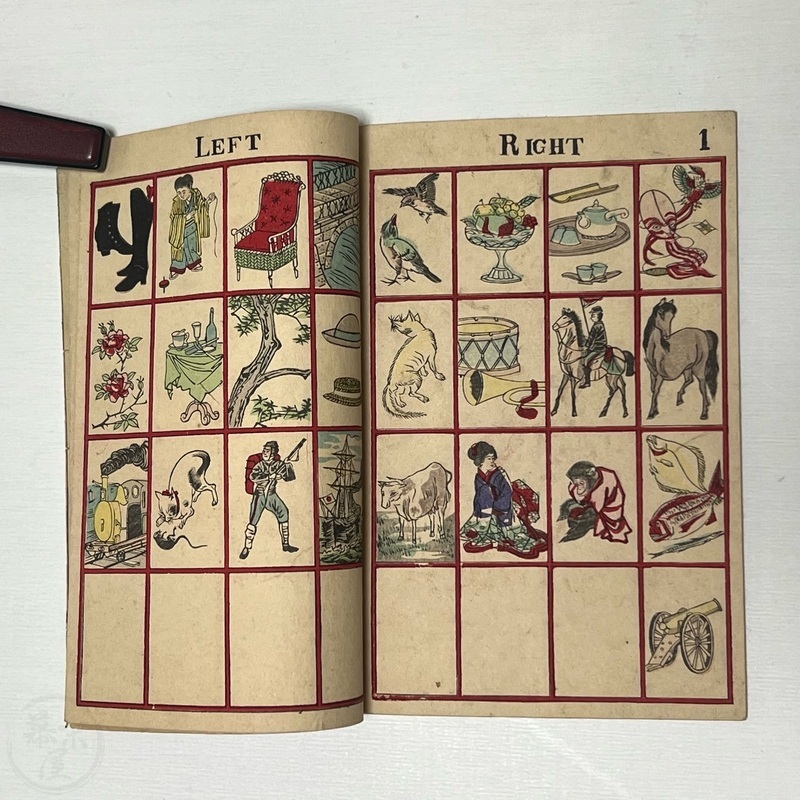 LEFT
RIGHT 1